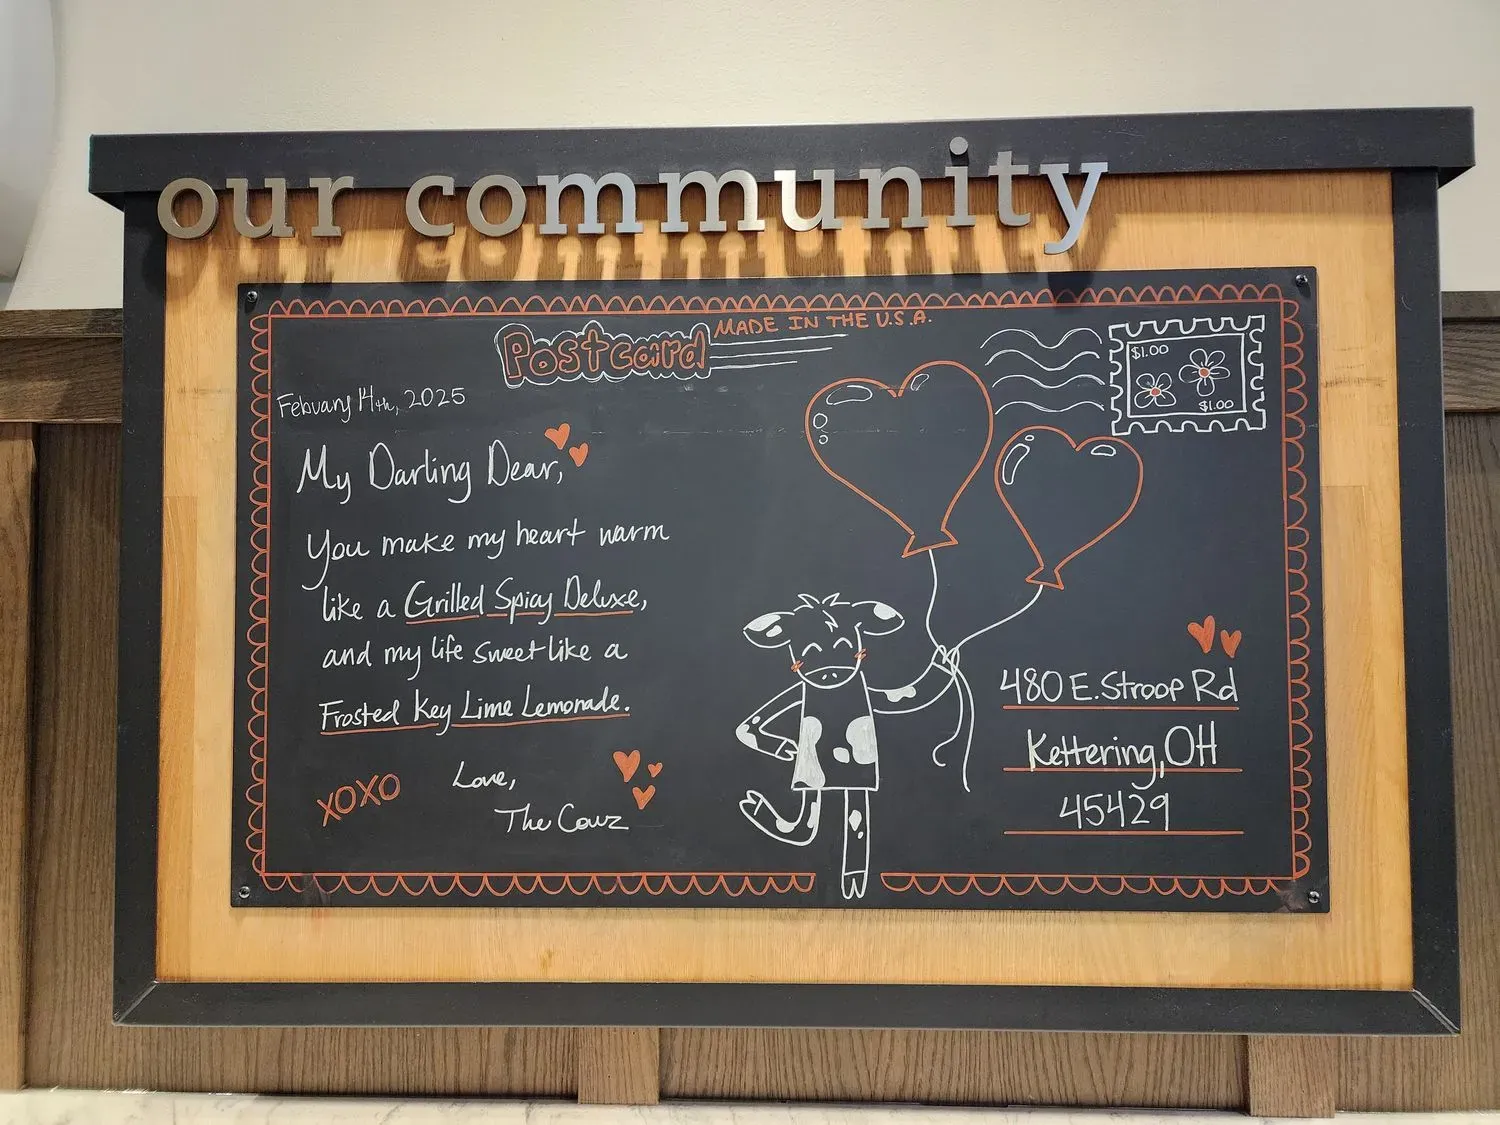 our community
Postcard MADE IN THE U.S.A.
$1.00
$1.00
Febuary 14th, 2025
My Darling Dear,
You make my heart warm
like a Grilled Spicy Deluxe,
and my life sweet like a
Frosted Key Lime Lemonade.
XOXO
Love,
The Cowz
480 E. Stroop Rd
Kettering, OH
45429